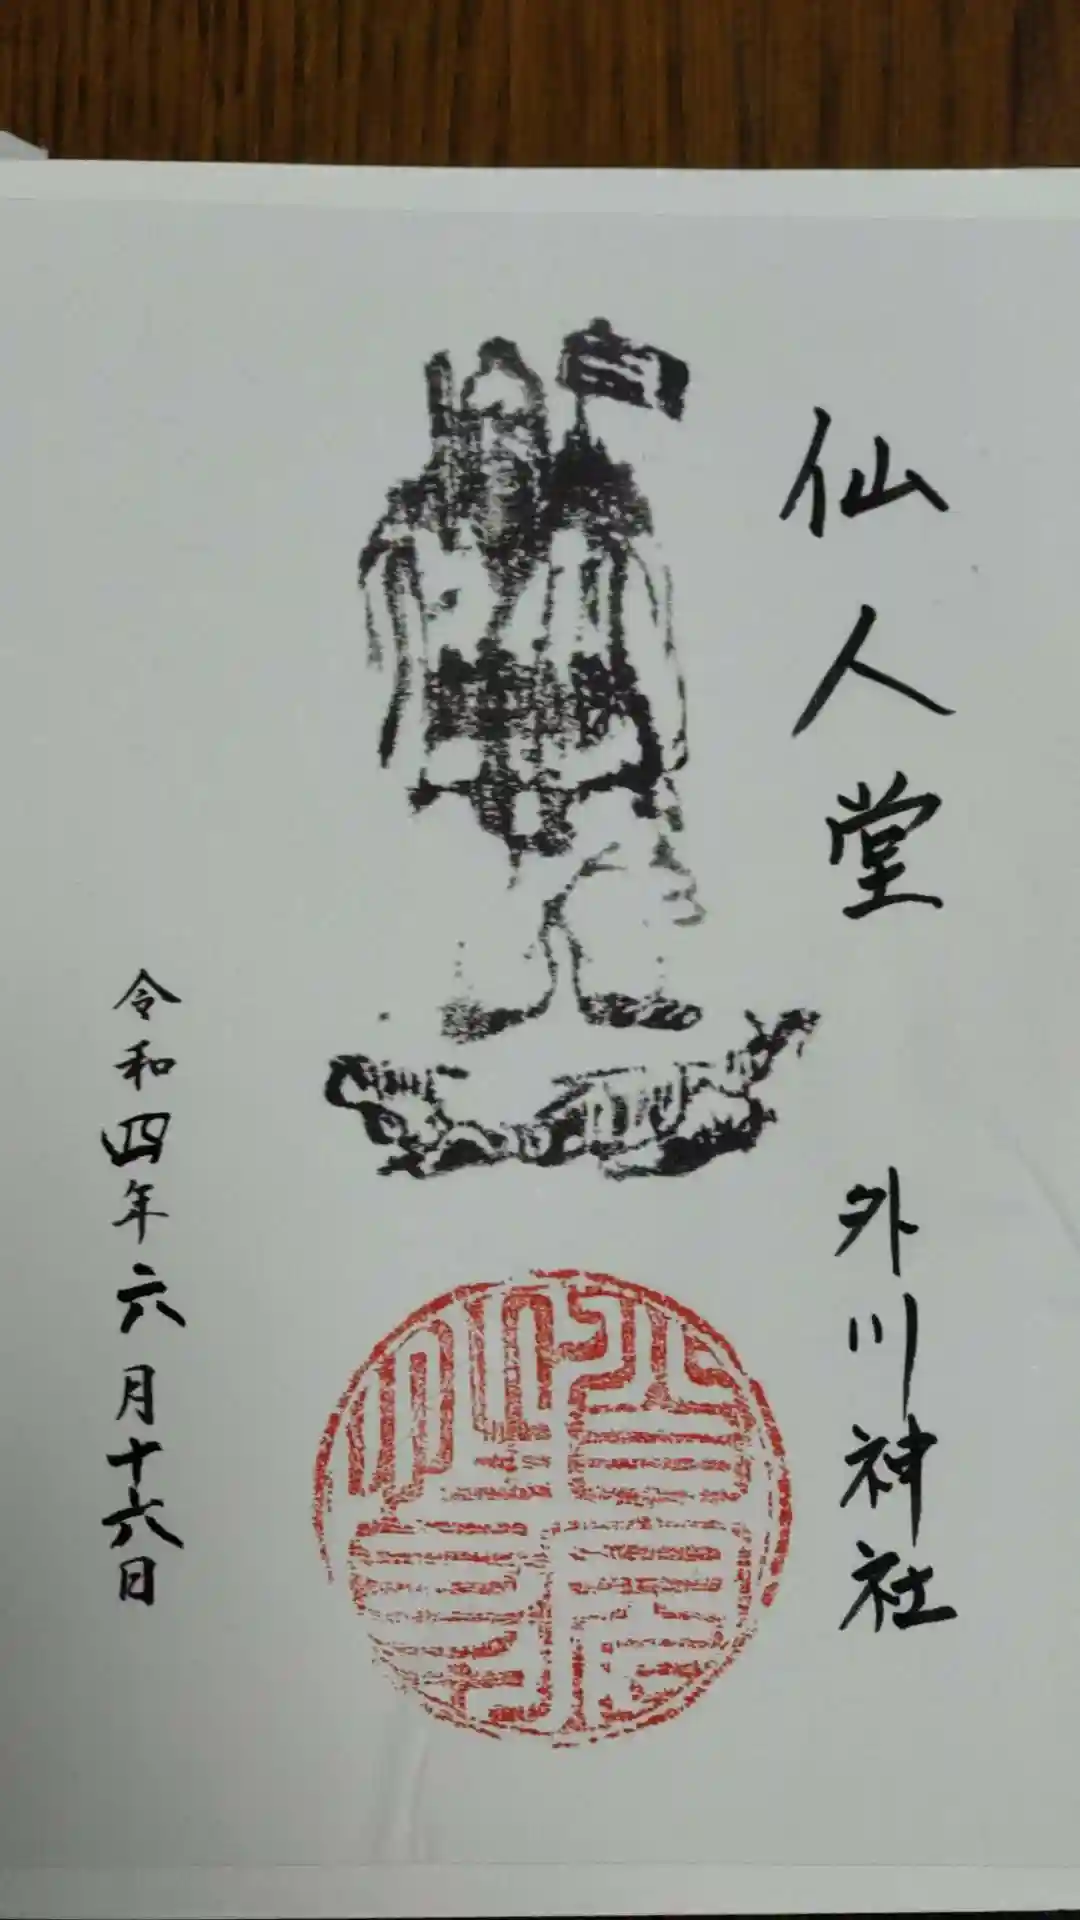 仙人堂
外川神社
令和四年六月十六日